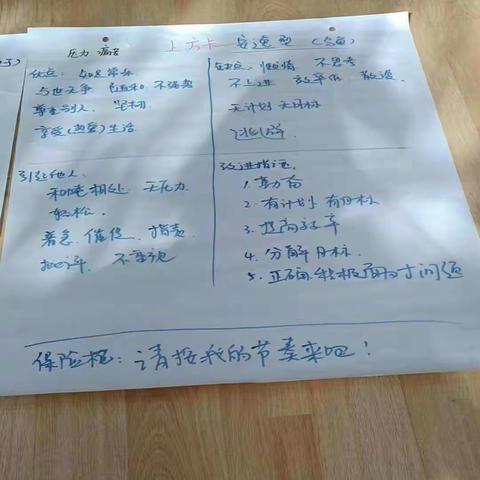 压力 痛苦
上方卡 安逸型 (乌龟)
优点: 知足常乐
与世无争 随和 不强势
尊重别人,
享受(热爱)生活
缺点: 懒惰 不思考
不上进 效率低 散漫
无计划 无目标
逃避
引发他人:
和他相处 无压力
轻松.
着急. 催促. 指责.
批评. 不重视
改进措施
1. 有方向
2. 有计划 有目标
3. 提高效率
4. 分解目标.
5. 正确积极面对问题
保险框: 请按我的节奏来吧!